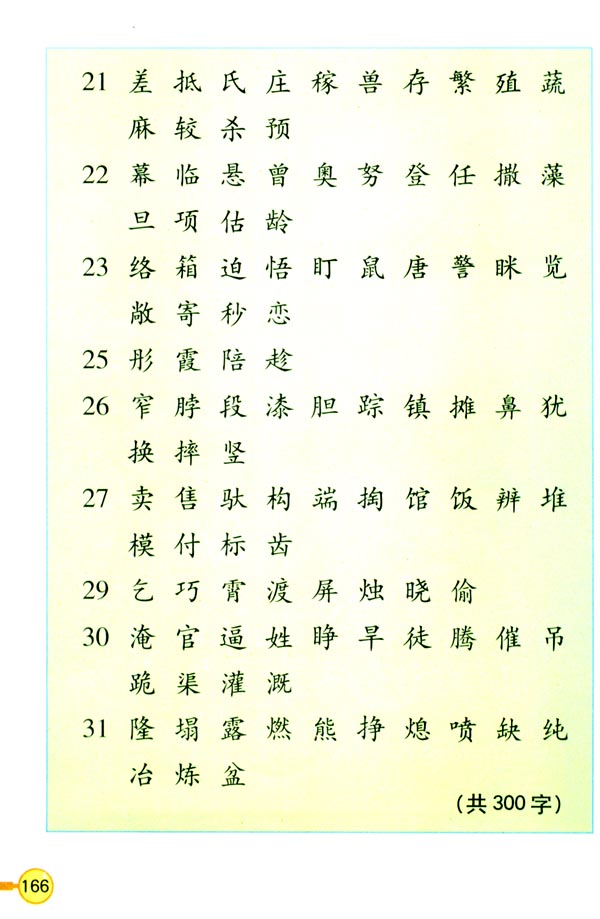 21 差 抵 氏 庄 稼 兽 存 繁 殖 蔬
麻 较 杀 预
22 幕 临 悬 曾 奥 努 登 任 撒 藻
旦 项 估 龄
23 络 箱 迫 悟 盯 鼠 唐 警 眯 览
敞 寄 秒 恋
25 彤 霞 陪 趁
26 窄 脖 段 漆 胆 踪 镇 摊 鼻 犹
换 摔 竖
27 卖 售 驮 构 端 掏 馆 饭 辨 堆
模 付 标 齿
29 乞 巧 霄 渡 屏 烛 晓 偷
30 淹 官 逼 姓 睁 旱 徒 腾 催 吊
跪 渠 灌 溉
31 隆 塌 露 燃 熊 挣 熄 喷 缺 纯
冶 炼 盆
（共 300 字）
166